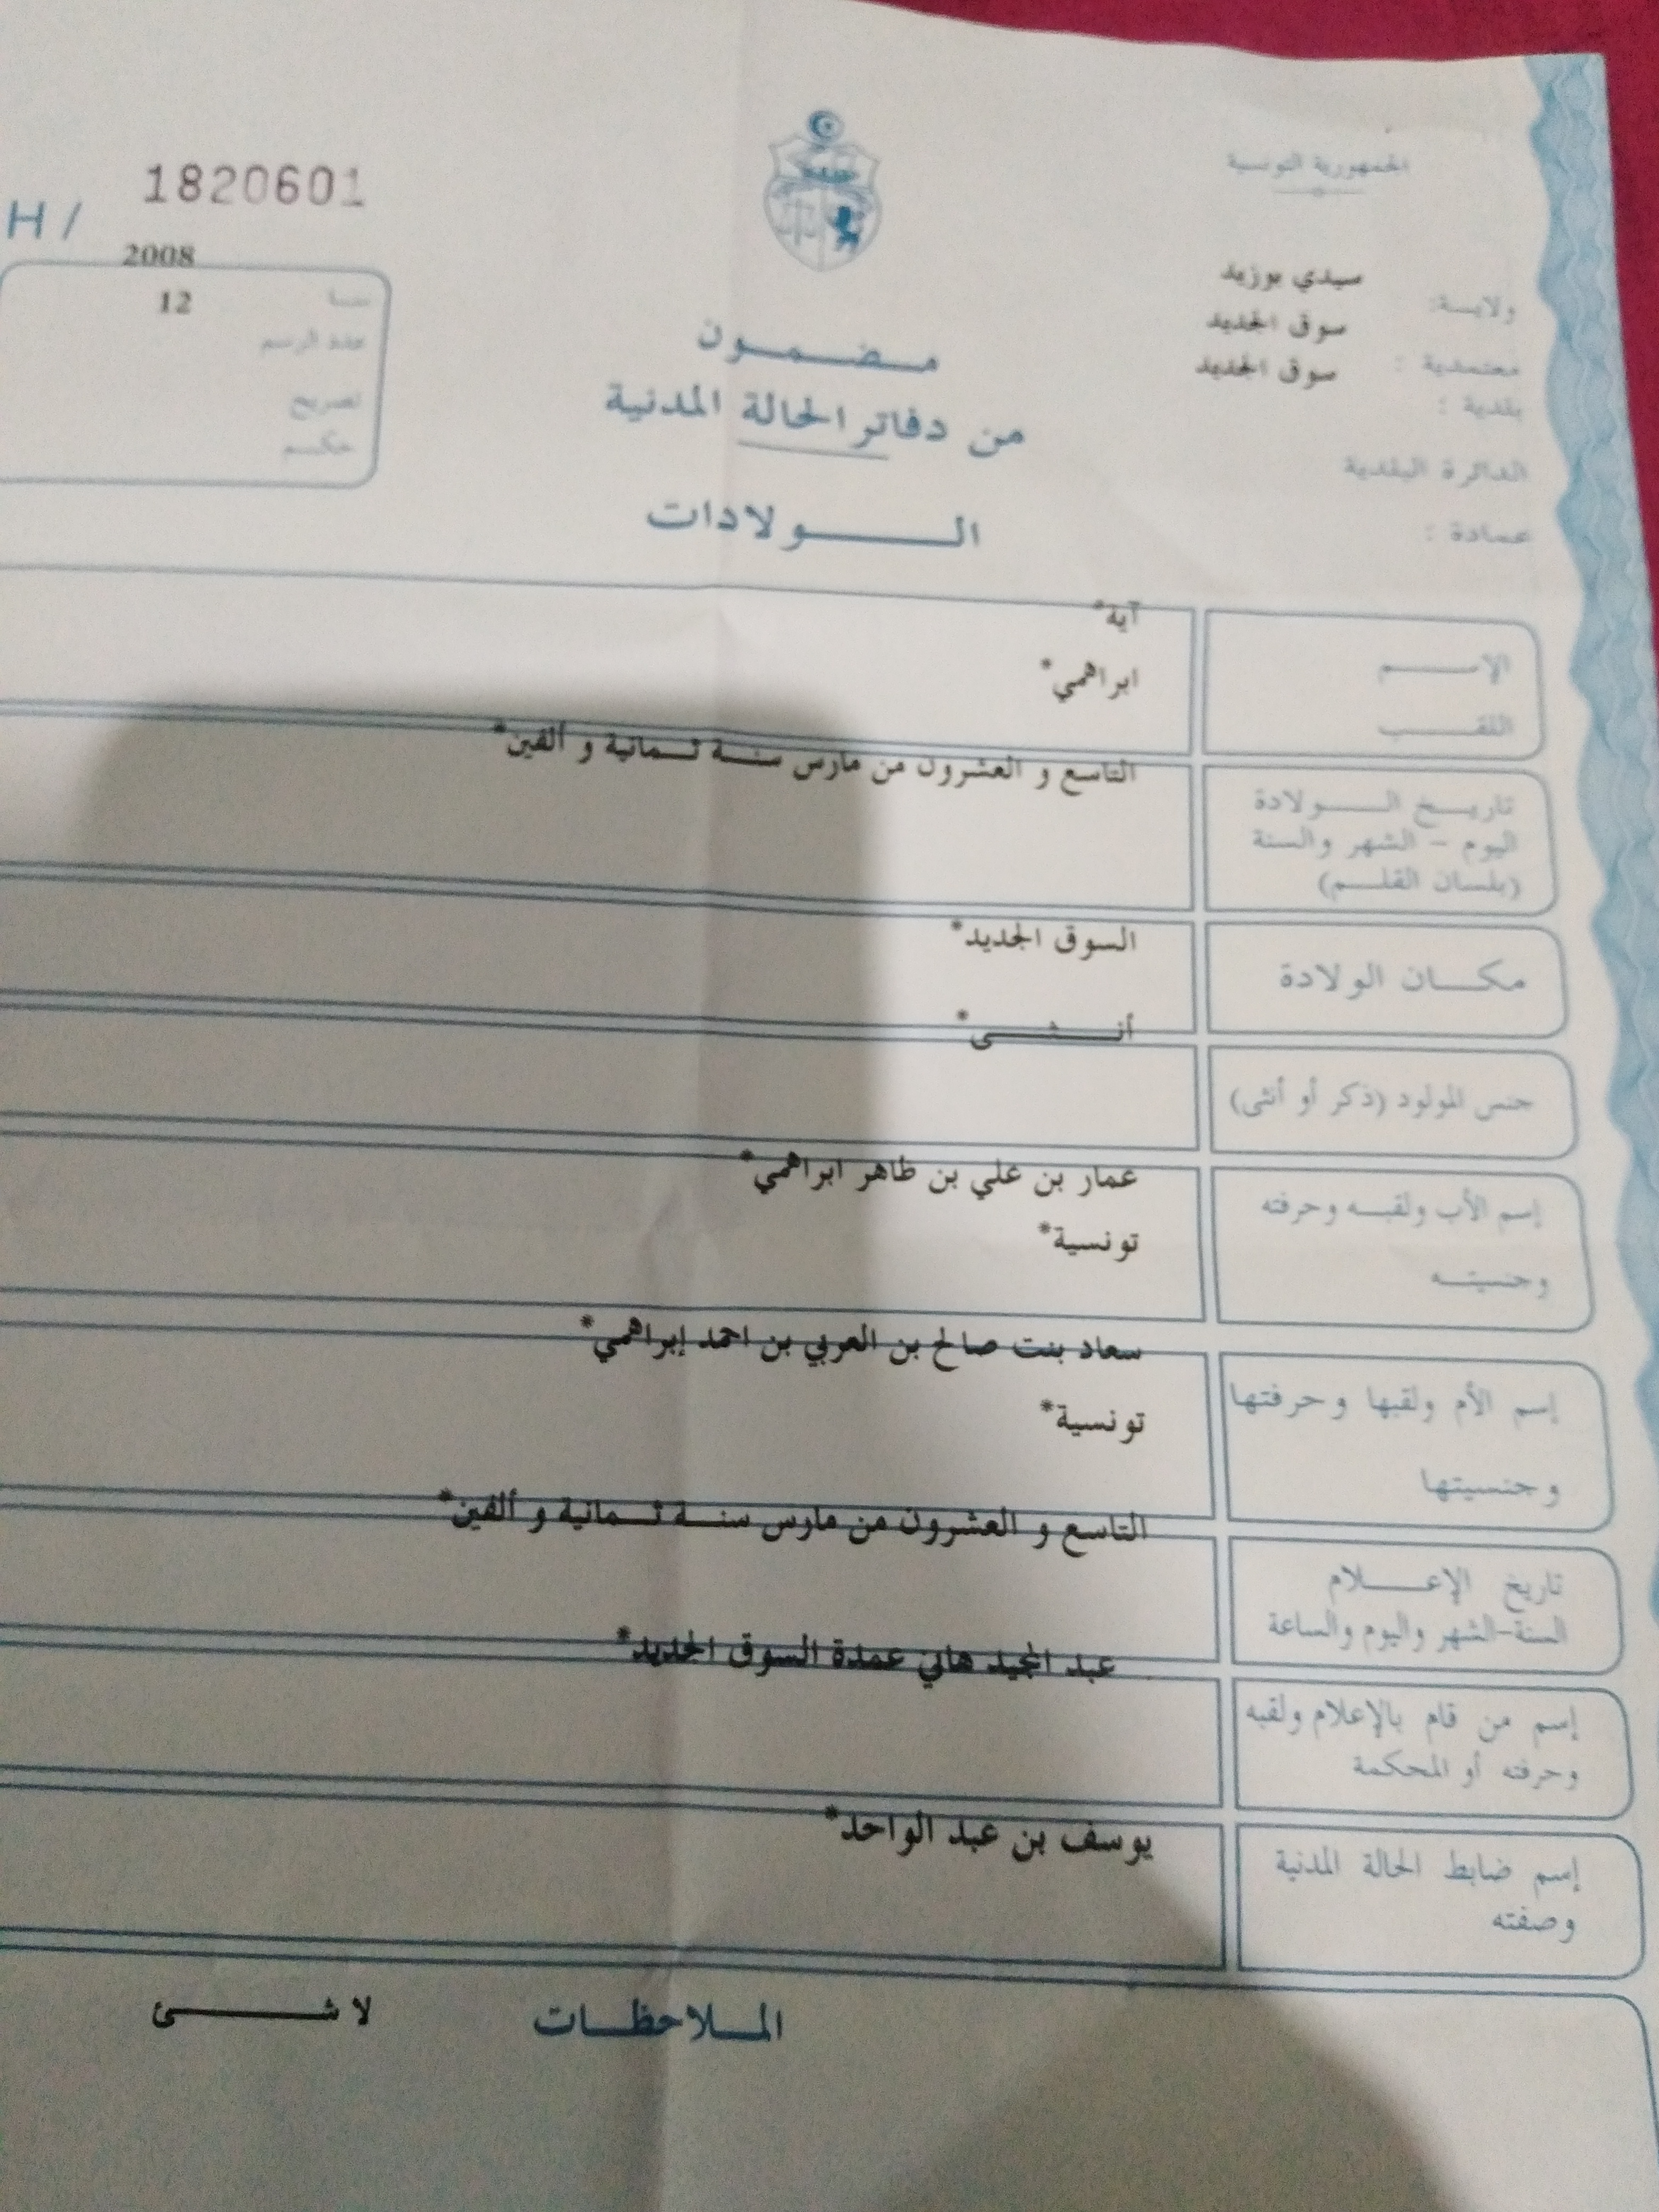 الجمهورية التونسية
H / 1820601
ولايـــة: سيدي بوزيد
معتمدية : سوق الجديد
بلدية : سوق الجديد
الدائرة البلدية
عمادة :
2008
سنـــة 12
عدد الرسم
تصريح
حكـــم
مـــضـــمـــون
من دفاتر الحالة المدنية
الـــــولادات
الإســــــم آية*
اللقـــــب ابراهمي*
تاريـــخ الـــــولادة التاسع و العشرون من مارس سنـــة ثـــمانية و ألفين*
اليوم – الشهر والسنة
(بلسان القلـــم)
مكـــان الولادة السوق الجديد*
جنس المولود (ذكر أو أنثى) أنـــــثـــــى*
إسم الأب ولقبـــه وحرفته عمار بن علي بن ظاهر ابراهمي*
وجنسيتـــه تونسية*
إسم الأم ولقبها وحرفتها سعاد بنت صالح بن العربي بن احمد إبراهمي*
وجنسيتها تونسية*
تاريخ الإعـــــلام التاسع و العشرون من مارس سنـــة ثـــمانية و ألفين*
السنة-الشهر واليوم والساعة
إسم من قام بالإعلام ولقبه عبد المجيد هاني عمدة السوق الجديد*
وحرفته أو المحكمة
إسم ضابط الحالة المدنية يوسف بن عبد الواحد*
وصفته
المـــلاحظـــات لا شـــــــئ